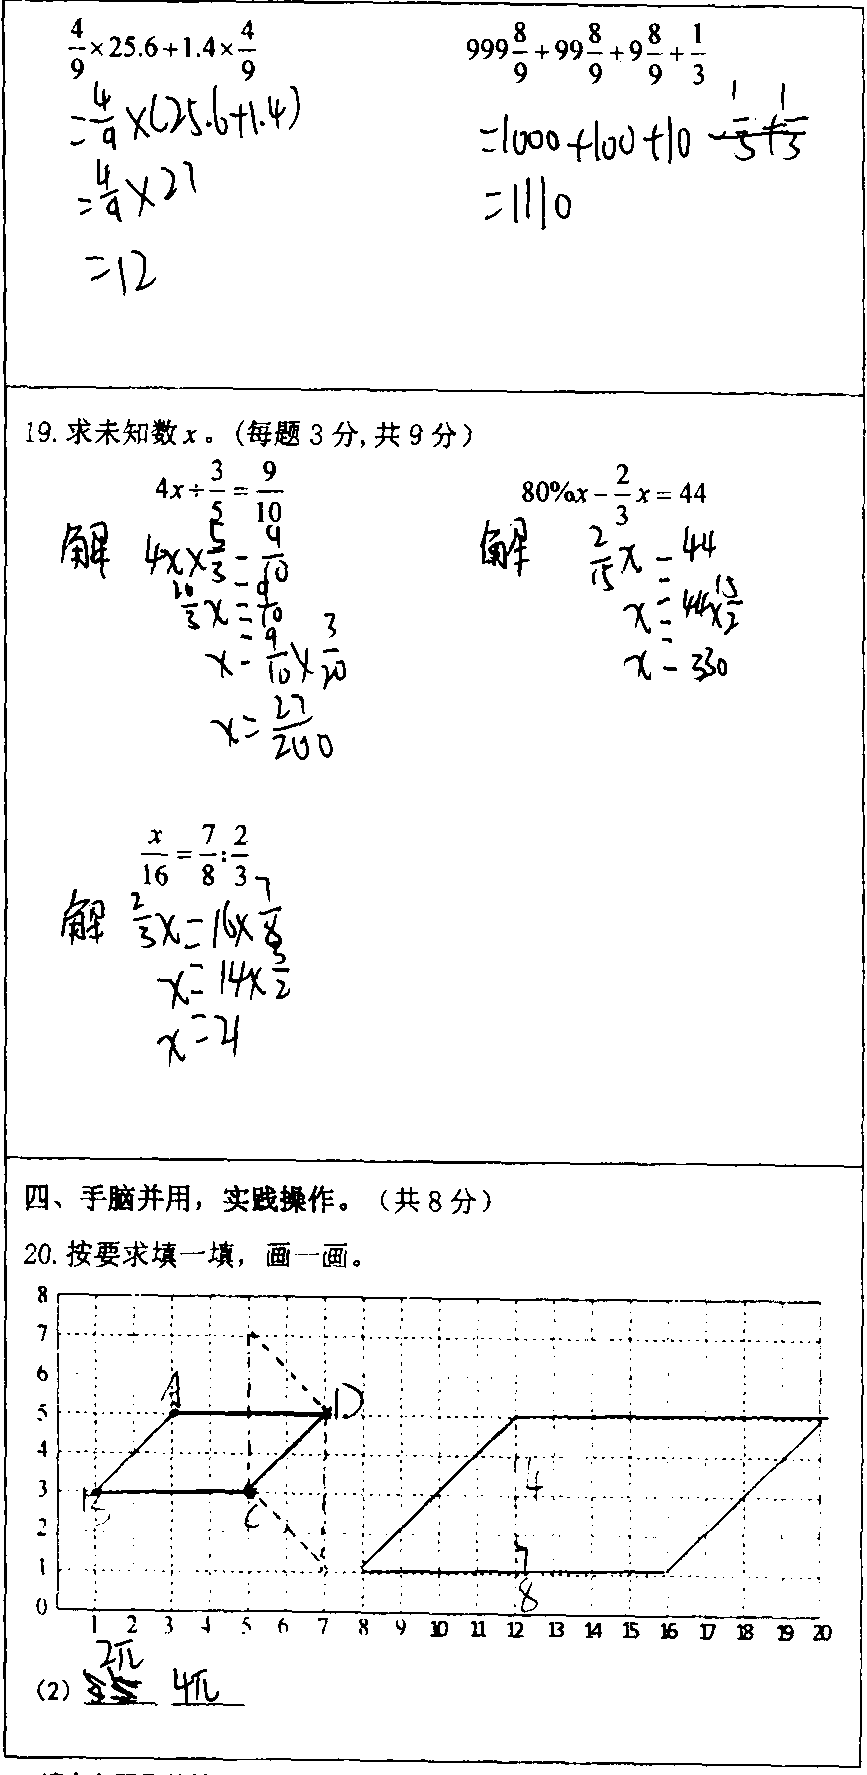 4/9×25.6+1.4×4/9
=4/9×(25.6+1.4)
=4/9×27
=12
999 8/9+99 8/9+9 8/9+1/3
=1000+100+10
=1110
19. 求未知数x。(每题3分,共9分)
4x÷3/5=9/10
解 4x×5/3=9/10
20/3x=9/10
x=9/10×3/20
x=27/200
80%x-2/3x=44
解 2/15x=44
x=44×15/2
x=330
x/16=7/8:2/3
解 2/3x=16×7/8
x=14×3/2
x=21
四、手脑并用，实践操作。（共8分）
20. 按要求填一填，画一画。
8
7
6 A
5 D
4
3 B C 4
2
1
0 8
1 2 3 4 5 6 7 8 9 10 11 12 13 14 15 16 17 18 19 20
(2) 2π 4π